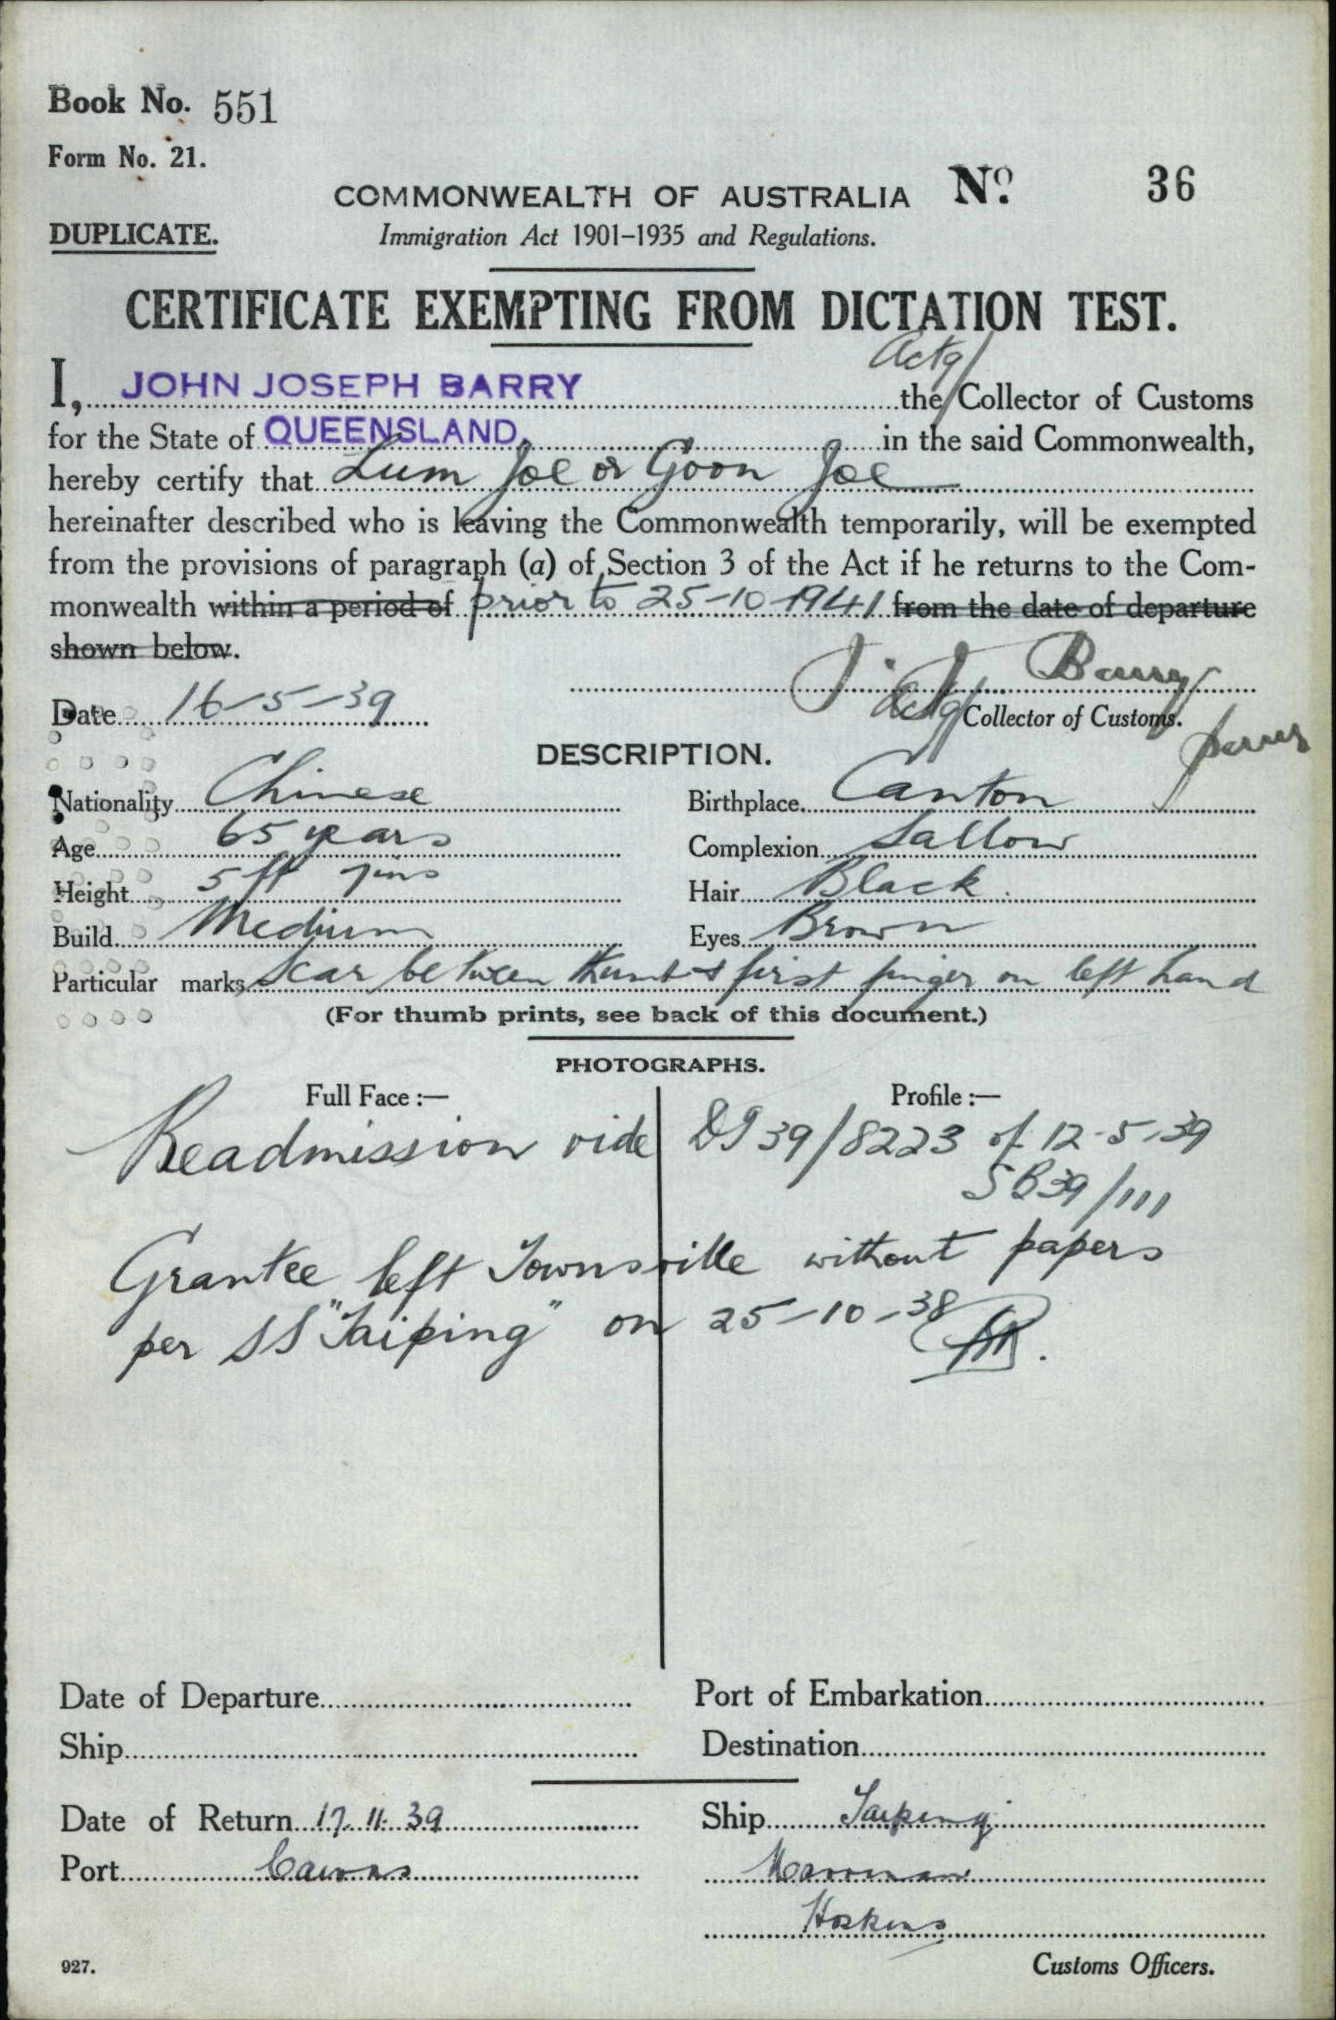 Book No. 551
Form No. 21.
COMMONWEALTH OF AUSTRALIA No. 36
DUPLICATE. Immigration Act 1901–1935 and Regulations.
CERTIFICATE EXEMPTING FROM DICTATION TEST.
Actg/
I, JOHN JOSEPH BARRY the/Collector of Customs
for the State of QUEENSLAND, in the said Commonwealth,
hereby certify that Lum Joe or Goon Joe
hereinafter described who is leaving the Commonwealth temporarily, will be exempted
from the provisions of paragraph (a) of Section 3 of the Act if he returns to the Com-
monwealth within a period of prior to 25-10-1941 from the date of departure
shown below.
J. J. Barry
Date 16-5-39 Actg/Collector of Customs.
DESCRIPTION.
Nationality Chinese Birthplace Canton
Age 65 years Complexion Sallow
Height 5 ft 7 ins Hair Black.
Build Medium Eyes Brown
Particular marks Scar between thumb & first finger on left hand
(For thumb prints, see back of this document.)
PHOTOGRAPHS.
Full Face :— Profile :—
Readmission vide 39/8223 of 12-5-39
SB39/111
Grantee left Townsville without papers
per SS "Taiping" on 25-10-38
Date of Departure Port of Embarkation
Ship Destination
Date of Return 17.11.39 Ship Taiping
Port Cairns
Hoskins
927. Customs Officers.